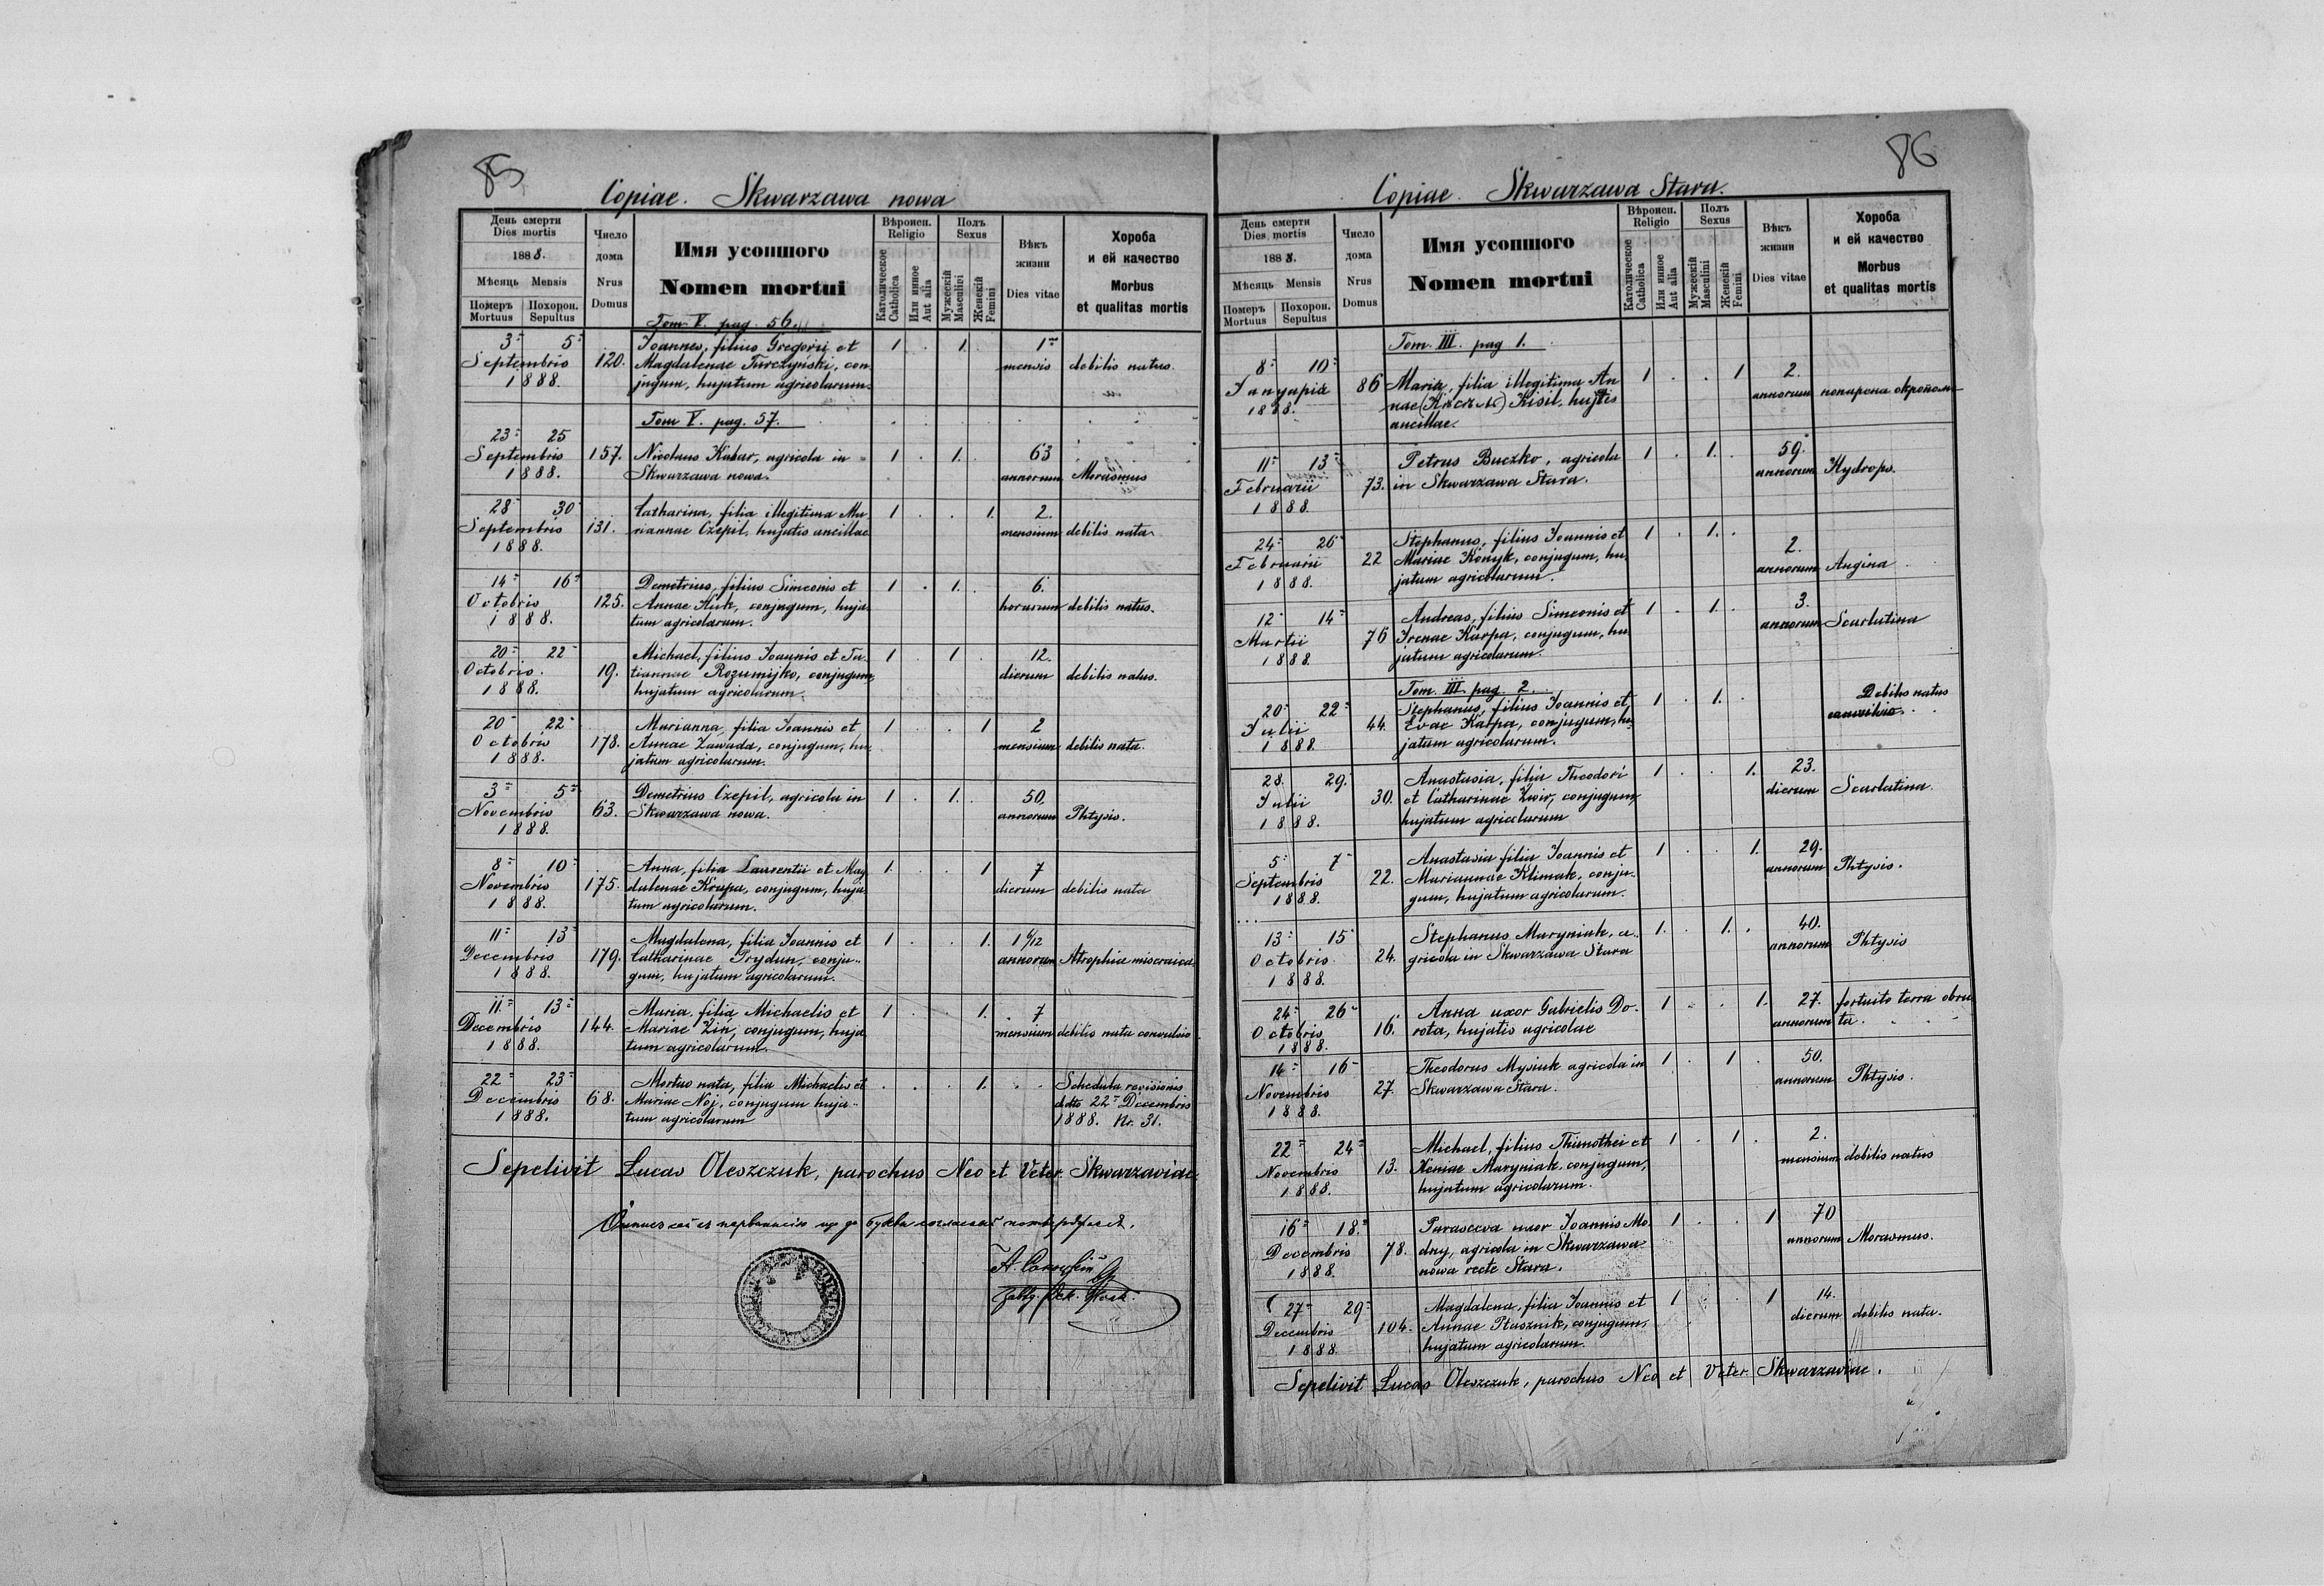 85
Copiae. Skwarzawa nowa
День смерти
Dies mortis
1888.
Мѣсяць Mensis
Померъ Mortuus
Похорон. Sepultus
Число дома
Nrus Domus
Имя усопшого
Nomen mortui
Вѣроисп.
Religio
Католическое Catholica
Или инное Aut alia
Полъ
Sexus
Мужескій Masculini
Женскій Femini
Вѣкъ жизни
Dies vitae
Хороба
и ей качество
Morbus
et qualitas mortis
Tom V. pag. 56.
3 5 Joannes, filius Gregorii et 1 . 1. 1
Septembris 120. Magdalenae Turczyński, con mensis debilis natus.
1888. jugum, hujatum agricolarum.
Tom V. pag. 57.
23 25
Septembris 157. Nicolaus Kabar, agricola in 1 . 1. 63
1888. Skwarzawa nowa. annorum Morasmus
28 30 Catharina, filia illegitima Ma 1 . . 1. 2.
Septembris 131. riannae Czepil, hujatis ancillae mensium debilis nata
1888.
14 16 Demetrius, filius Simeonis et 1 . 1. 6.
Octobris 125. Annae Kuk, conjugum, huja horarum debilis natus.
1888. tum agricolarum.
20 22 Michael, filius Joannis et Ta 1 . 1 . 12.
Octobris. 19. tiannae Rozumijko, conjugum, dierum debilis natus.
1888. hujatum agricolarum.
20 22 Marianna, filia Joannis et 1 . . 1 2
Octobris 178. Annae Zawada, conjugum, hu mensium debilis nata.
1888. jatum agricolarum.
3 5 Demetrius Czepil, agricola in 1 . 1. 50.
Novembris 63. Skwarzawa nowa. annorum Phtysis.
1888.
8 10 Anna, filia Laurentii et Mag 1. . . 1 7
Novembris 175. dalenae Krupa, conjugum, huja dierum debilis nata
1888. tum agricolarum.
11 13 Magdalena, filia Joannis et 1 . . 1. 1 1/12
Decembris 179. Catharinae Prydun, conju annorum Atrophia
1888. gum, hujatum agricolarum.
11 13 Maria, filia Michaelis et 1 . . 1. 7
Decembris 144. Mariae Ziń, conjugum, huja mensium debilis nata convulsio
1888. tum agricolarum.
22 23 Mortuo nata, filia Michaelis et . . . 1. . . Schedula revisionis
Decembris 68. Mariae Noj, conjugum huja ddto 22 Decembris
1888. tum agricolarum 1888. Nr. 31.
Sepelivit Lucas Oleszczuk, parochus Neo et Veter. Skwarzaviae.
86
Copiae. Skwarzawa Stara.
День смерти
Dies mortis
1888.
Мѣсяць Mensis
Померъ Mortuus
Похорон. Sepultus
Число дома
Nrus Domus
Имя усопшого
Nomen mortui
Вѣроисп.
Religio
Католическое Catholica
Или инное Aut alia
Полъ
Sexus
Мужескій Masculini
Женскій Femini
Вѣкъ жизни
Dies vitae
Хороба
и ей качество
Morbus
et qualitas mortis
Tom. III. pag 1.
8 10
86 Maria, filia illegitima An 1 . . 1 2.
1888. nae Kisil, hujtis annorum
ancillae.
11 13 Petrus Buczko, agricola 1 . 1. 59.
Februarii 73. in Skwarzawa Stara. annorum Hydrops.
1888.
24 26 Stephanus, filius Joannis et 1 . 1. .
Februarii 22 Mariae Konyk, conjugum, hu 2. annorum Angina
1888. jatum agricolarum.
12 14 Andreas, filius Simeonis et 1 . 1. . 3.
Martii 76 Irenae Karpa, conjugum, hu annorum Scarlatina
1888. jatum agricolarum.
Tom. III pag. 2.
20 22 Stephanus, filius Joannis et 1 . 1. . Debilis natus
Julii 44. Evae Karpa, conjugum, hu
1888. jatum agricolarum.
28. 29. Anastasia, filia Theodori 1 . . 1. 23.
Julii 30. et Catharinae Zwir, conjugum, dierum Scarlatina.
1888. hujatum agricolarum
5 7 Anastasia filia Joannis et 1 . . 1. 29.
Septembris 22. Mariannae Klimak, conju annorum Phtysis.
1888. gum, hujatum agricolarum.
13 15 Stephanus Maryniak, a 1. . 1. . 40.
Octobris 24. gricola in Skwarzawa Stara annorum Phtysis
1888.
24 26 Anna uxor Gabrielis Do- 1 . . 1. 27. fortuito terra obru
Octobris 16. rota, hujatis agricolae annorum ta.
1888.
14 16 Theodorus Mysiuk agricola in 1 . 1 . 50.
Novembris 27. Skwarzawa Stara. annorum Phtysis.
1888.
22 24 Michael, filius Thimothei et 1 . 1 . 2.
Novembris 13. Xeniae Maryniak, conjugum, mensium debilis natus
1888. hujatum agricolarum.
16 18. Parasceva uxor Joannis Mo 1 . . 1 70
Decembris 78. dny, agricola in Skwarzawa annorum Morasmus.
1888. nowa recte Stara.
27 29 Magdalena, filia Joannis et 1 . . 1 14.
Decembris 104. Annae Ptasznik, conjugum, dierum debilis nata.
1888. hujatum agricolarum.
Sepelivit Lucas Oleszczuk, parochus Neo et Veter. Skwarzaviae.